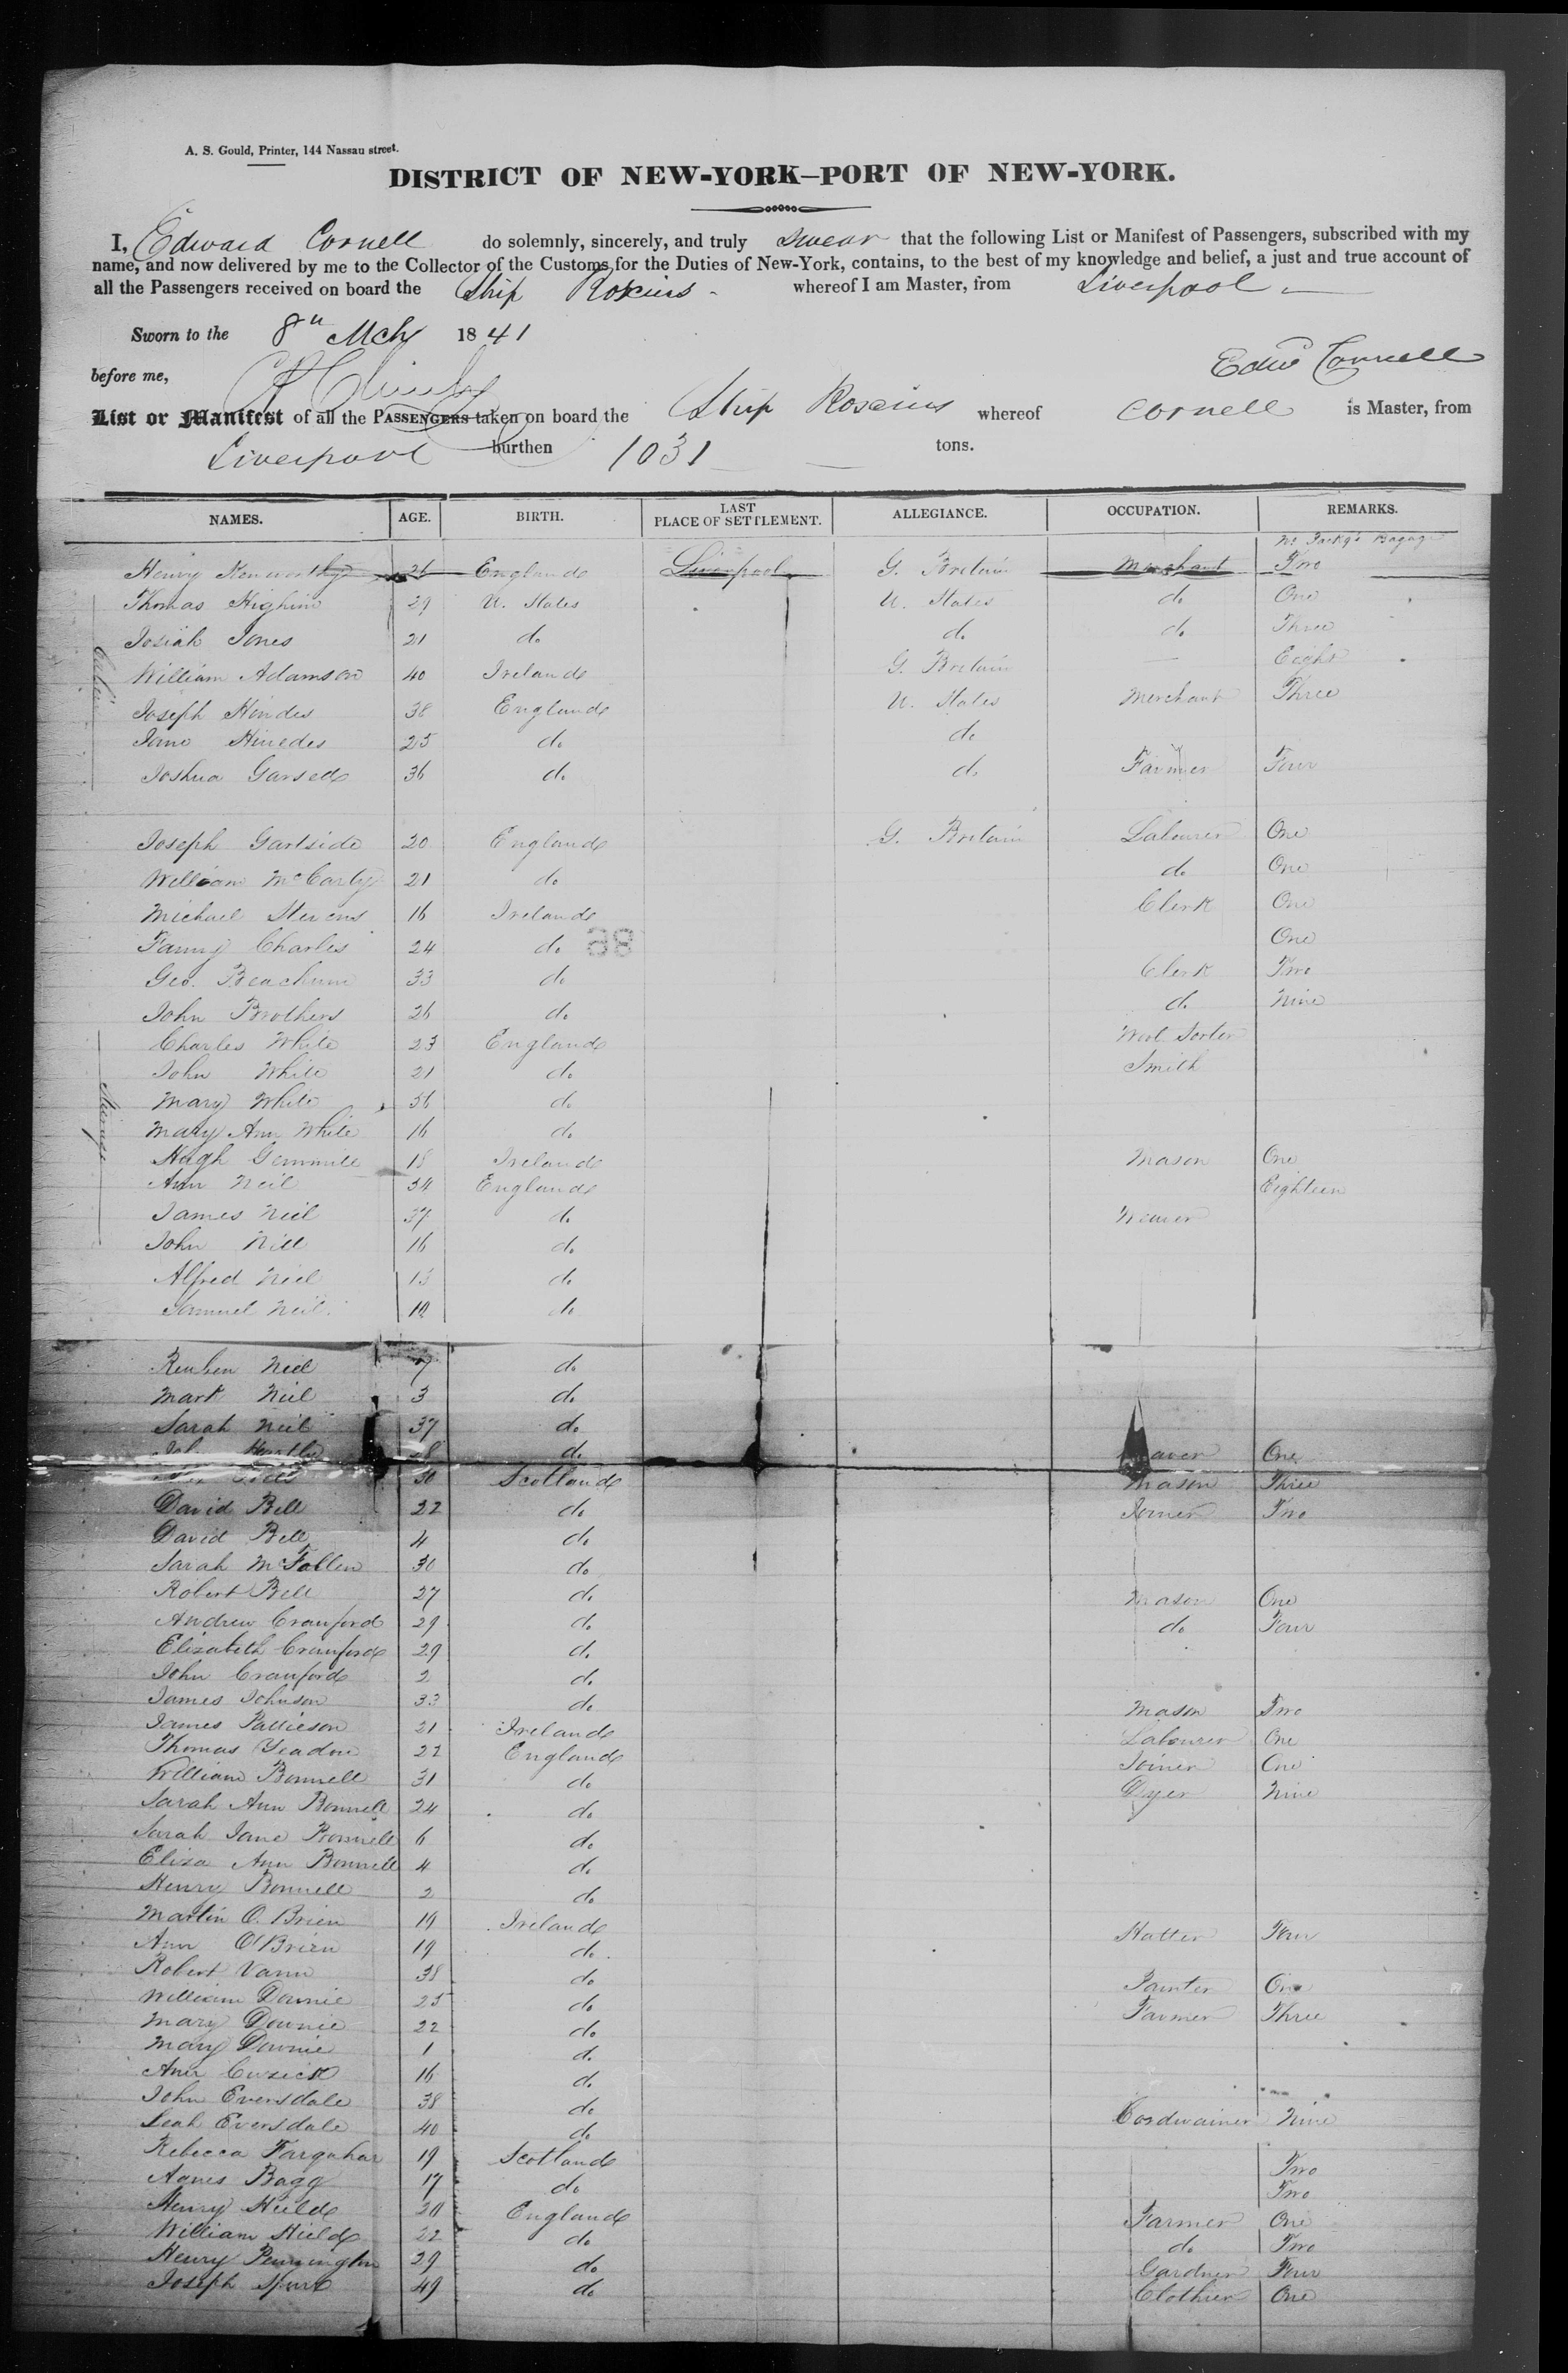 A. S. Gould, Printer, 144 Nassau street.
DISTRICT OF NEW-YORK—PORT OF NEW-YORK.
I, Edward Cornell do solemnly, sincerely, and truly swear that the following List or Manifest of Passengers, subscribed with my
name, and now delivered by me to the Collector of the Customs for the Duties of New-York, contains, to the best of my knowledge and belief, a just and true account of
all the Passengers received on board the Ship Roscius whereof I am Master, from Liverpool
Sworn to the 8th Mch 1841
Edwd Cornell
before me,
List or Manifest of all the PASSENGERS taken on board the Ship Roscius whereof Cornell is Master, from
Liverpool burthen 1031 tons.
NAMES. AGE. BIRTH. LAST PLACE OF SETTLEMENT. ALLEGIANCE. OCCUPATION. REMARKS.
Henry Kenworthy 26 England Liverpool G. Bretain Merchant Two
Thomas Higham 29 U. States U. States do One
Josiah Jones 21 do do do Three
William Adamson 40 Ireland G. Bretain — Eight
Joseph Hindes 38 England U. States Merchant Three
Jane Hinedes 25 do do
Joshua Garsed 36 do do Farmer Four
Joseph Gartside 20 England G. Bretain Labourer One
William McCarty 21 do do One
Michael Stevens 16 Ireland Clerk One
Fanny Charles 24 do One
Geo. Beachum 33 do Clerk Two
John Brothers 26 do do Nine
Charles White 23 England Wool Sorter
John White 21 do Smith
Mary White 56 do
Mary Ann White 16 do
Hugh Gemmill 18 Ireland Mason One
Ann Neil 34 England Eighteen
James Neil 37 do Weaver
John Neil 16 do
Alfred Neil 13 do
Samuel Neil do
Reuben Neil 7 do
Mark Neil 3 do
Sarah Neil 37 do
do One
30 Scotland Mason Three
David Bell 22 do Joiner Two
David Bell 4 do
Sarah McFallen 30 do
Robert Bell 27 do Mason One
Andrew Crauford 29 do do Four
Elizabeth Crauford 29 do
John Crauford 2 do
James Johnson 33 do Mason Two
James Pattieson 21 Ireland Labourer One
Thomas Yeadon 22 England Joiner One
William Bonnell 31 do Dyer Nine
Sarah Ann Bonnell 24 do
Sarah Jane Bonnell 6 do
Eliza Ann Bonnell 4 do
Henry Bonnell 2 do
Martin O. Brien 19 Ireland Hatter Four
Ann O'Brien 19 do
Robert Vann 38 do Painter One
William Downie 25 do Farmer Three
Mary Downie 22 do
Mary Downie 1 do
Ann Cusick 16 do
John Eversdale 38 do Cordwainer Nine
Leah Eversdale 40 do
Rebecca Farquhar 19 Scotland Two
Agnes Bagg 17 do Two
Henry Hield 20 England Farmer One
William Hield 22 do do Two
Henry Pennington 29 do Gardner Four
Joseph 49 do Clothier One